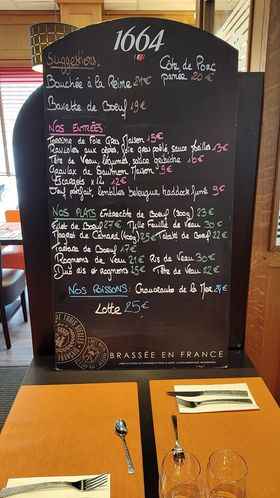 1664
Suggestions
Côte de Porc
panée 20 €
Bouchée à la Reine 21€
Bavette de Boeuf 19€
Nos Entrées
Terrine de Foie Gras Maison 15€
Ravioles aux cèpes, foie gras poêlé sauce 13€
Tête de Veau, légumes, sauce gribiche 10€
Gravlax de Saumon Maison 9€
Escargots x 12 12€
Oeuf parfait, lentilles belougua haddock fumé 9€
Nos Plats Entrecôte de Boeuf (300g) 23€
Filet de Boeuf 27€ Mille Feuille de Veau 30€
Magret de Canard 25€ Boeuf 22€
Tartare de Boeuf 17€
Rognons de Veau 21€ Ris de Veau 30€
Duo ris et rognons 25€ Tête de Veau 22€
Nos Poissons: de la Mer 24€
Lotte 25€
BRASSÉE EN FRANCE